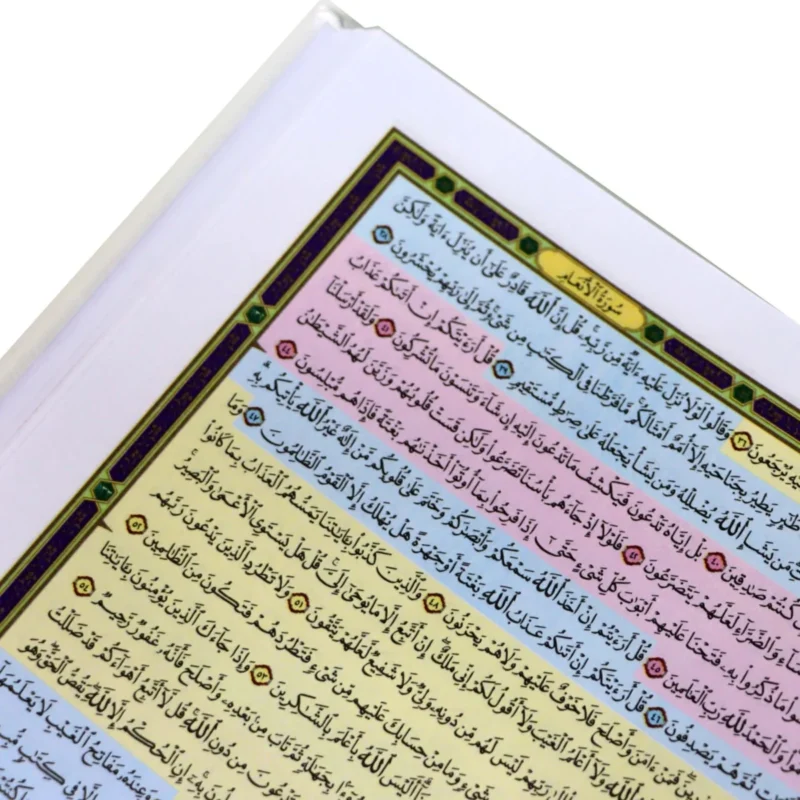 سُورَةُ الْأَنْعَامِ
يُرْجَعُونَ ٣٦ وَقَالُوا۟ لَوْلَا نُزِّلَ عَلَيْهِ ءَايَةٌ مِّن رَّبِّهِۦ قُلْ إِنَّ ٱللَّهَ قَادِرٌ عَلَىٰٓ أَن يُنَزِّلَ ءَايَةً وَلَٰكِنَّ
يَطِيرُ بِجَنَاحَيْهِ إِلَّآ أُمَمٌ أَمْثَالُكُم مَّا فَرَّطْنَا فِى ٱلْكِتَٰبِ مِن شَىْءٍ ثُمَّ إِلَىٰ رَبِّهِمْ يُحْشَرُونَ ٣٨
مَن يَشَإِ ٱللَّهُ يُضْلِلْهُ وَمَن يَشَأْ يَجْعَلْهُ عَلَىٰ صِرَٰطٍ مُّسْتَقِيمٍ ٣٩ قُلْ أَرَءَيْتَكُمْ إِنْ أَتَىٰكُمْ عَذَابُ
كُنتُمْ صَٰدِقِينَ ٤٠ بَلْ إِيَّاهُ تَدْعُونَ فَيَكْشِفُ مَا تَدْعُونَ إِلَيْهِ إِن شَآءَ وَتَنسَوْنَ مَا تُشْرِكُونَ ٤١ وَلَقَدْ أَرْسَلْنَآ
وَٱلضَّرَّآءِ لَعَلَّهُمْ يَتَضَرَّعُونَ ٤٢ فَلَوْلَآ إِذْ جَآءَهُم بَأْسُنَا تَضَرَّعُوا۟ وَلَٰكِن قَسَتْ قُلُوبُهُمْ وَزَيَّنَ لَهُمُ ٱلشَّيْطَٰنُ
مَا ذُكِّرُوا۟ بِهِۦ فَتَحْنَا عَلَيْهِمْ أَبْوَٰبَ كُلِّ شَىْءٍ حَتَّىٰٓ إِذَا فَرِحُوا۟ بِمَآ أُوتُوٓا۟ أَخَذْنَٰهُم بَغْتَةً فَإِذَا هُم مُّبْلِسُونَ ٤٤
وَٱلْحَمْدُ لِلَّهِ رَبِّ ٱلْعَٰلَمِينَ ٤٥ قُلْ أَرَءَيْتُمْ إِنْ أَخَذَ ٱللَّهُ سَمْعَكُمْ وَأَبْصَٰرَكُمْ وَخَتَمَ عَلَىٰ قُلُوبِكُم مَّنْ إِلَٰهٌ غَيْرُ ٱللَّهِ يَأْتِيكُم بِهِ
ثُمَّ هُمْ يَصْدِفُونَ ٤٦ قُلْ أَرَءَيْتَكُمْ إِنْ أَتَىٰكُمْ عَذَابُ ٱللَّهِ بَغْتَةً أَوْ جَهْرَةً هَلْ يُهْلَكُ إِلَّا ٱلْقَوْمُ ٱلظَّٰلِمُونَ ٤٧ وَمَا
فَمَنْ ءَامَنَ وَأَصْلَحَ فَلَا خَوْفٌ عَلَيْهِمْ وَلَا هُمْ يَحْزَنُونَ ٤٨ وَٱلَّذِينَ كَذَّبُوا۟ بِـَٔايَٰتِنَا يَمَسُّهُمُ ٱلْعَذَابُ بِمَا كَانُوا۟
ٱللَّهِ وَلَآ أَعْلَمُ ٱلْغَيْبَ وَلَآ أَقُولُ لَكُمْ إِنِّى مَلَكٌ إِنْ أَتَّبِعُ إِلَّا مَا يُوحَىٰٓ إِلَىَّ قُلْ هَلْ يَسْتَوِى ٱلْأَعْمَىٰ وَٱلْبَصِيرُ
رَبِّهِمْ لَيْسَ لَهُم مِّن دُونِهِۦ وَلِىٌّ وَلَا شَفِيعٌ لَّعَلَّهُمْ يَتَّقُونَ ٥١ وَلَا تَطْرُدِ ٱلَّذِينَ يَدْعُونَ رَبَّهُم
شَىْءٍ وَمَا مِنْ حِسَابِكَ عَلَيْهِم مِّن شَىْءٍ فَتَطْرُدَهُمْ فَتَكُونَ مِنَ ٱلظَّٰلِمِينَ ٥٢
أَلَيْسَ ٱللَّهُ بِأَعْلَمَ بِٱلشَّٰكِرِينَ ٥٣ وَإِذَا جَآءَكَ ٱلَّذِينَ يُؤْمِنُونَ بِـَٔايَٰتِنَا
بِجَهَٰلَةٍ ثُمَّ تَابَ مِنۢ بَعْدِهِۦ وَأَصْلَحَ فَأَنَّهُۥ غَفُورٌ رَّحِيمٌ ٥٤
تَدْعُونَ مِن دُونِ ٱللَّهِ قُل لَّآ أَتَّبِعُ أَهْوَآءَكُمْ قَدْ ضَلَلْتُ
إِنِ ٱلْحُكْمُ إِلَّا لِلَّهِ يَقُصُّ ٱلْحَقَّ وَهُوَ
وَعِندَهُۥ مَفَاتِحُ ٱلْغَيْبِ لَا يَعْلَمُهَآ
إِلَّا فِى كِتَٰبٍ